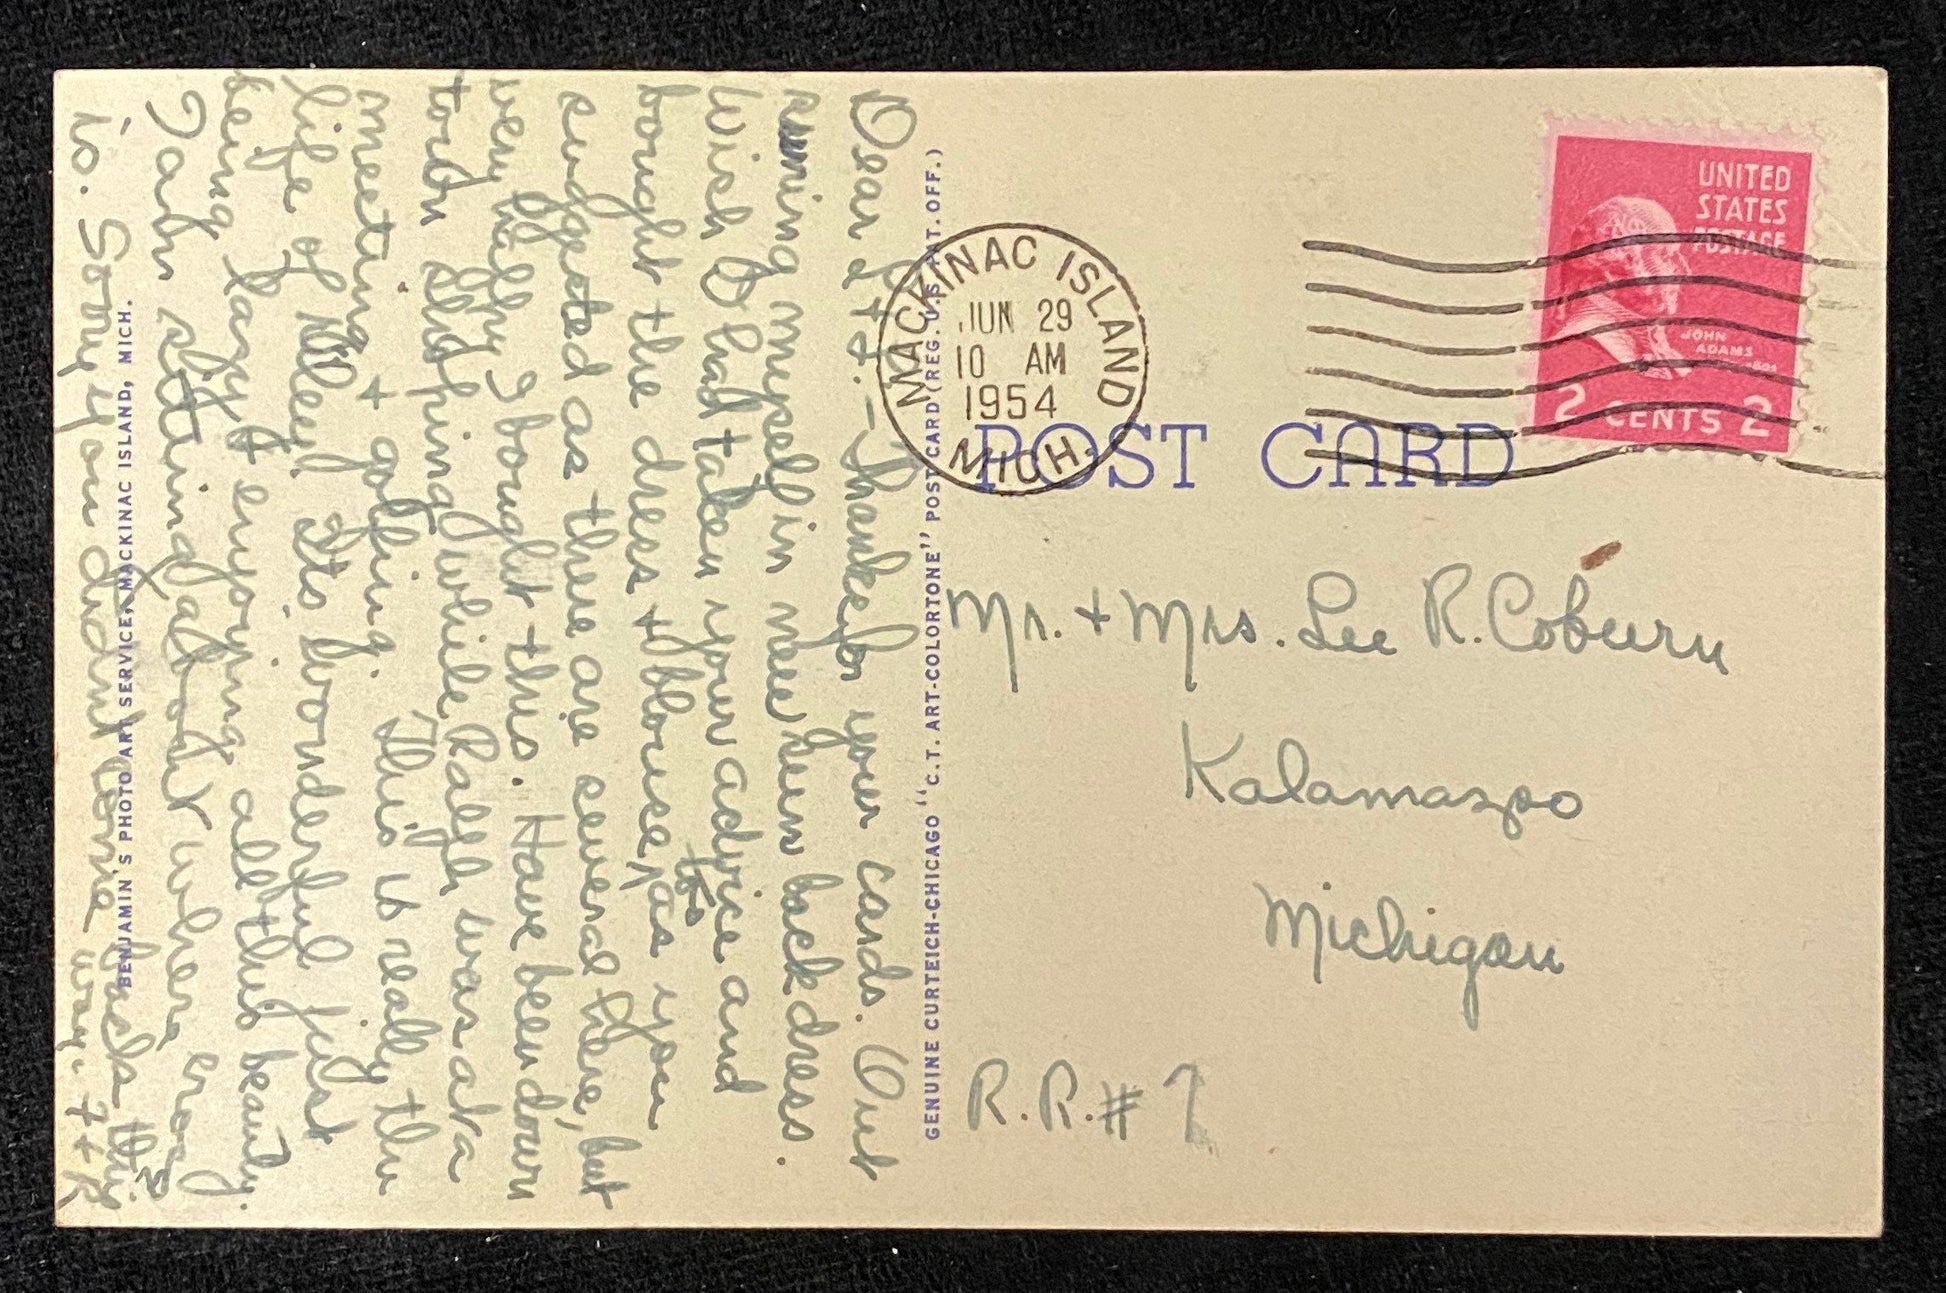 UNITED
STATES
POSTAGE
JOHN
ADAMS
2 CENTS 2
MACKINAC ISLAND
JUN 29
10 AM
1954
MICH.
POST CARD
Mr. + Mrs. Lee R. Coburn
Kalamazoo
Michigan
R.R. # 7
GENUINE CURTEICH-CHICAGO "C.T. ART-COLORTONE" POST CARD (REG. U.S. PAT. OFF.)
BENJAMIN'S PHOTO ART SERVICE, MACKINAC ISLAND, MICH.
Dear - Thanks for your cards. Out
sunning myself in new sun back dress.
Wish I had taken your advice and
bought the dress + blouse, as you
suggested as there are several here, but
very I bought this. Have been down
town shopping while Ralph was at a
meeting + golfing. This is really the
life of Riley! It's wonderful just
being lazy + enjoying all this beauty.
sitting about where
is. Sorry you didn't come back this way. F + R